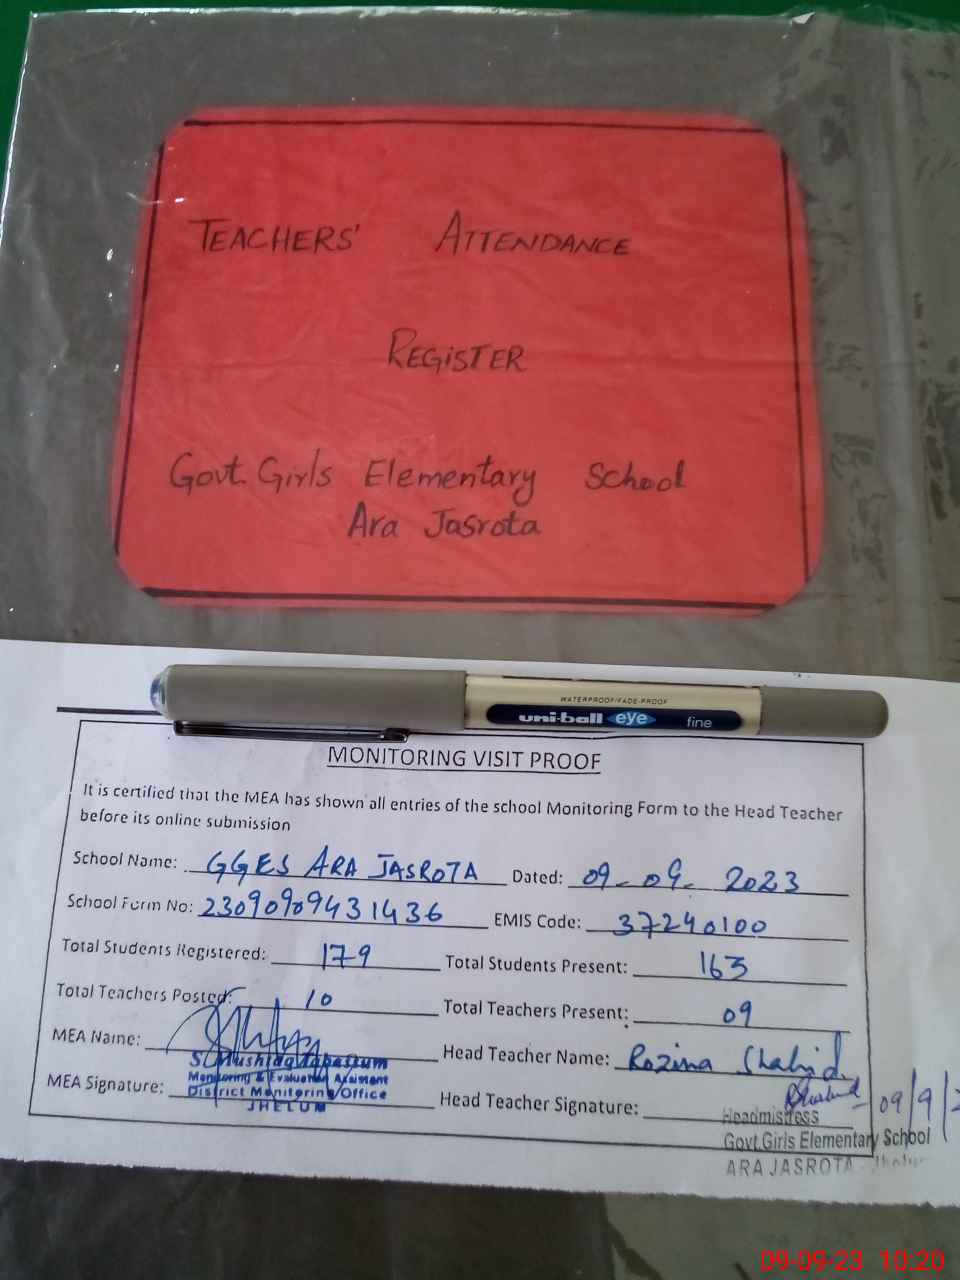 TEACHERS' ATTENDANCE
REGISTER
Govt. Girls Elementary School
Ara Jasrota
WATERPROOF/FADE-PROOF
uni-ball eye fine
MONITORING VISIT PROOF
It is certified that the MEA has shown all entries of the school Monitoring Form to the Head Teacher
before its online submission
School Name: GGES ARA JASROTA Dated: 09-09-2023
School Form No: 23090909431436 EMIS Code: 37240100
Total Students Registered: 179 Total Students Present: 163
Total Teachers Posted: 10 Total Teachers Present: 09
MEA Name: Head Teacher Name: Rozina Shahid
S. Mushtaq Tabassum
Monitoring & Evaluation Assistant
MEA Signature: District Monitoring Office
JHELUM
Head Teacher Signature: 09/9/2
Headmistress
Govt. Girls Elementary School
ARA JASROTA
09-09-23 10:20